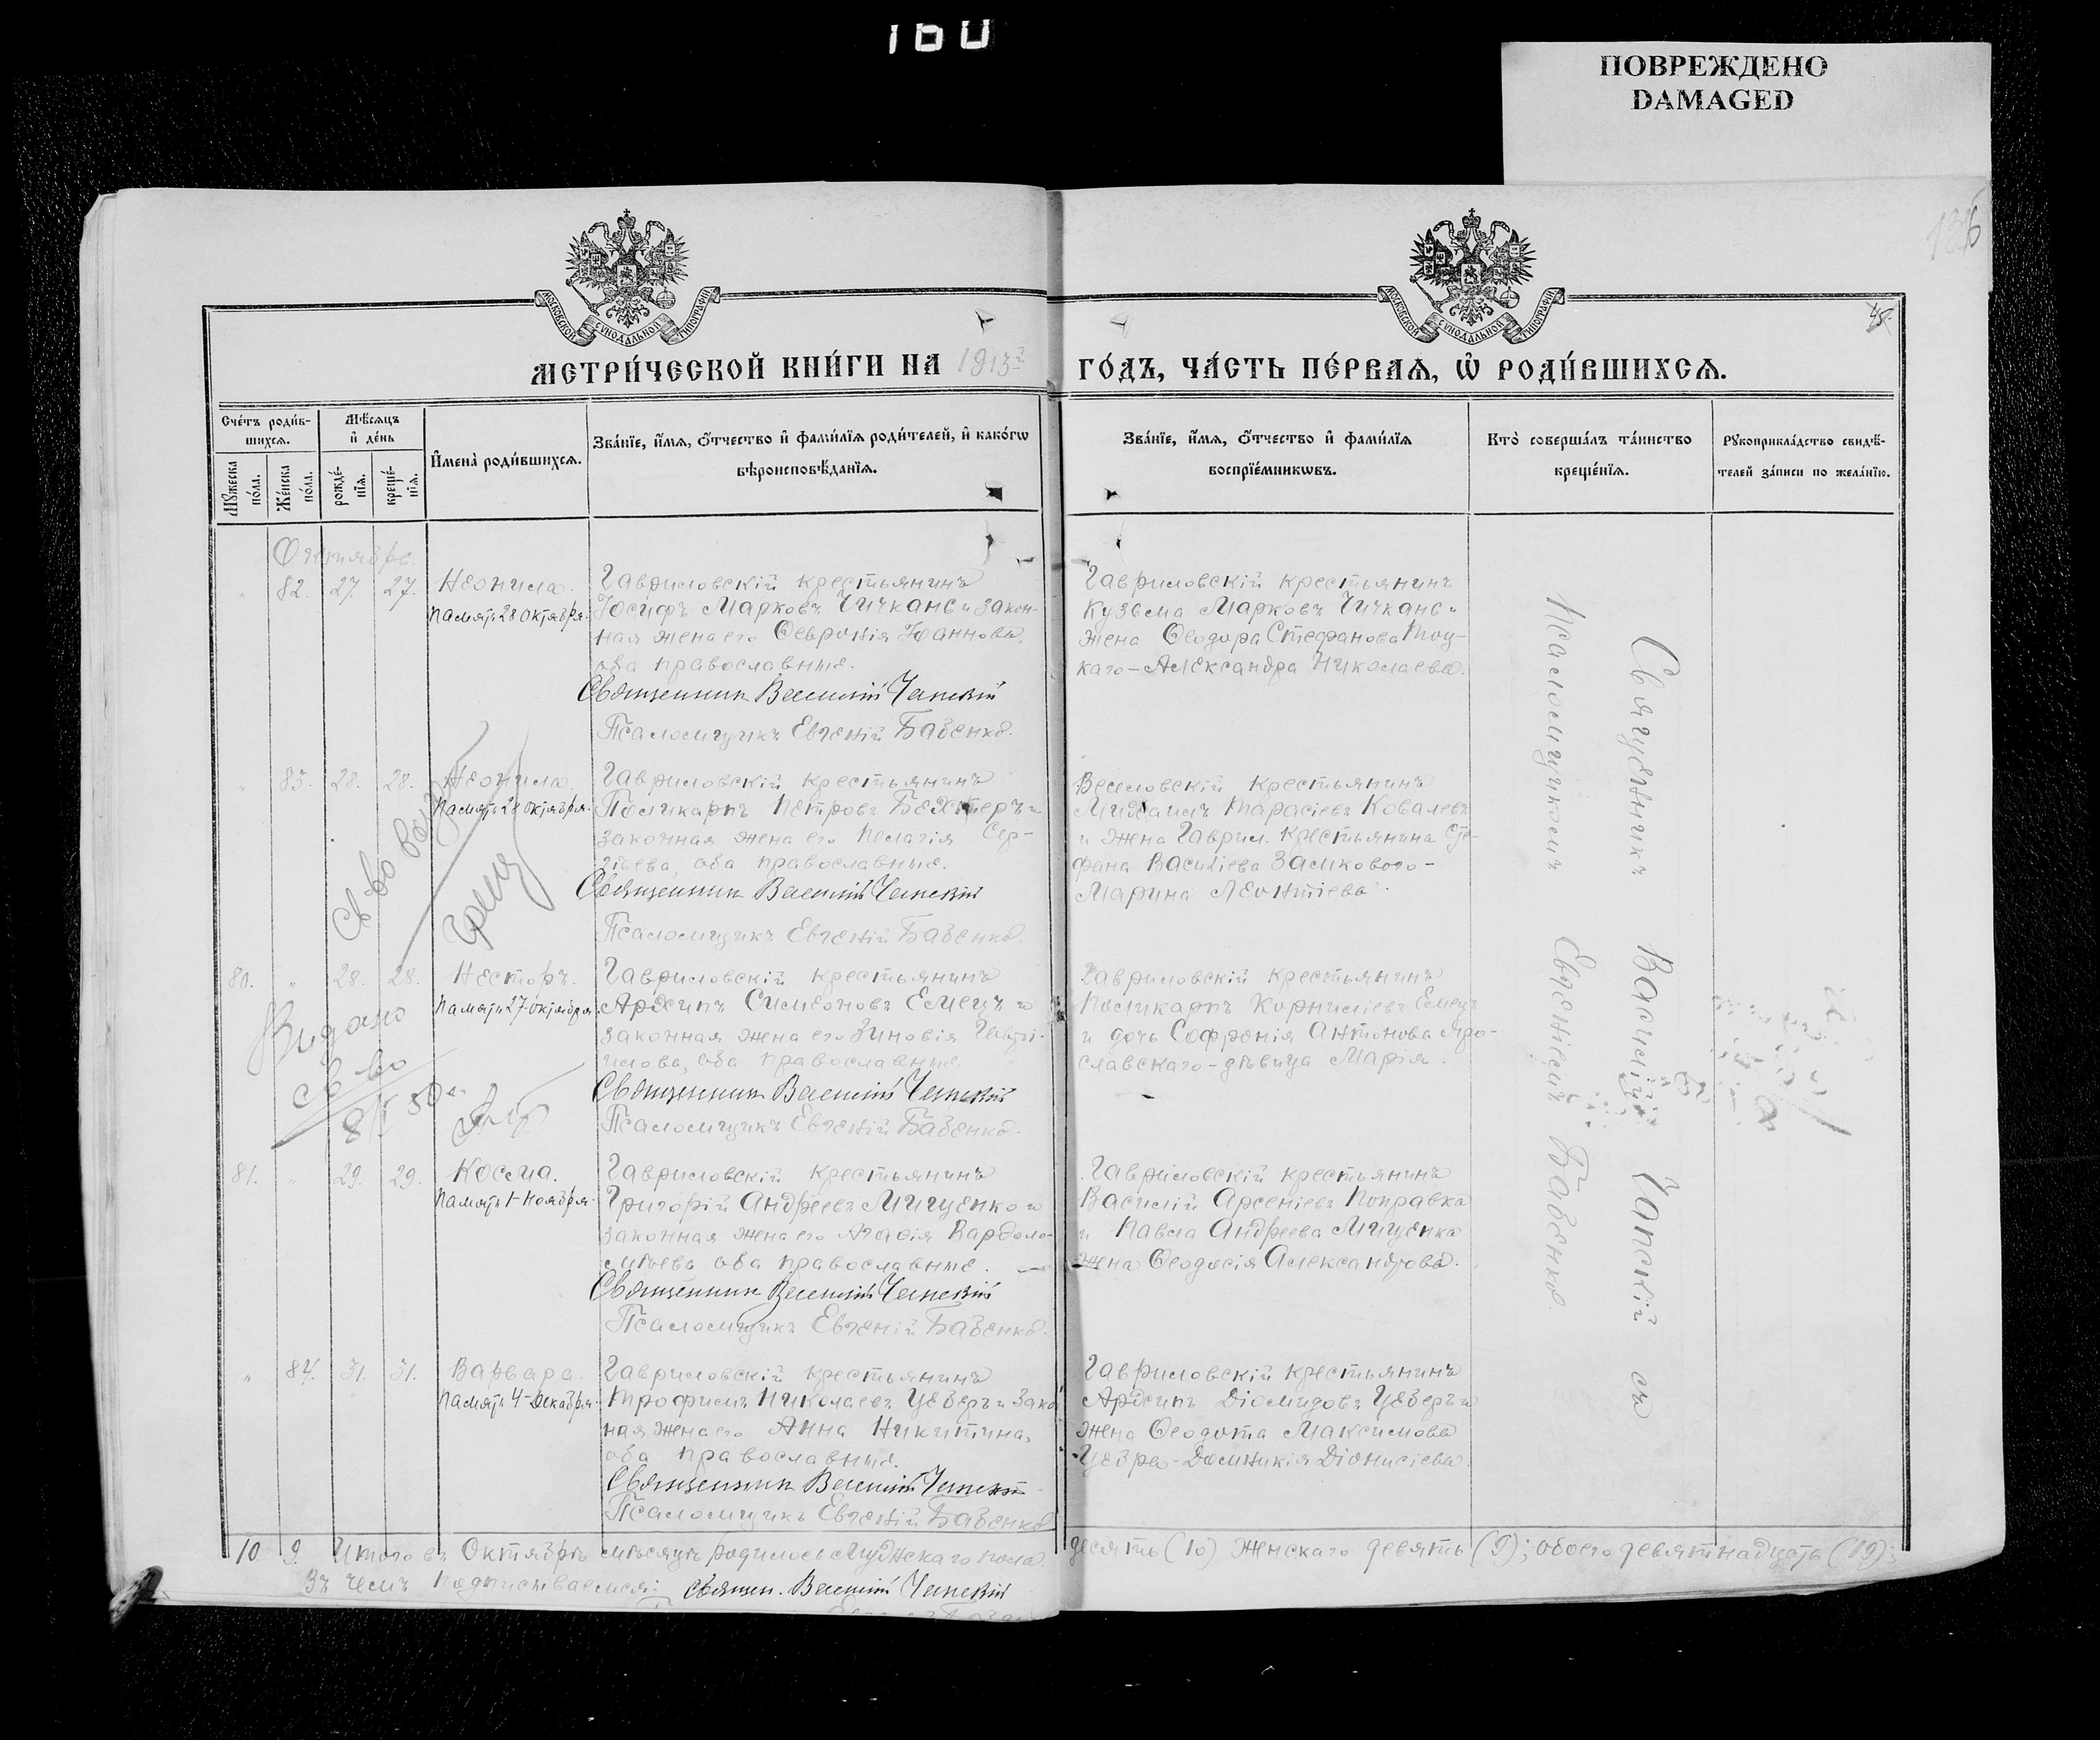 160
ПОВРЕЖДЕНО
DAMAGED
126
45.
МОСКОВСКОЙ СѴНОДАЛЬНОЙ ТИПОГРАФІИ
МОСКОВСКОЙ СѴНОДАЛЬНОЙ ТИПОГРАФІИ
МЕТРИ́ЧЕСКОЙ КНИ́ГИ НА 1913 г. ГО́ДЪ, ЧА́СТЬ ПЕ́РВАѦ, Ѽ РОДИ́ВШИХСѦ.
Сче́тъ роди́в-
шихсѧ.
Мѣ́сѧцъ
и҆ де́нь
Мꙋ́жеска
по́ла.
Же́нска
по́ла.
рожде́-
нїѧ.
креще́-
нїѧ.
И҆мена̀ роди́вшихсѧ.
Зва́нїе, и҆́мѧ, ѻ҆́тчество и҆ фами́лїѧ роди́телей, и҆ како́гѡ
вѣроисповѣ́данїѧ.
Зва́нїе, и҆́мѧ, ѻ҆́тчество и҆ фами́лїѧ
воспрїе́мникѡвъ.
Кто̀ соверша́лъ та́инство
креще́нїѧ.
Рꙋкоприкла́дство свидѣ́-
телей за́писи по жела́нїю.
Октябрь.
" 82. 27. 27. Неонила.
Память 28 Октября.
Гавриловскій крестьянинъ
Іосифъ Марковъ Чичканъ и закон-
ная жена его Ѳевронія Іоаннова,
оба православные.
Священникъ Василій Чапскій
Псаломщикъ Евгеній Бабенко.
Гавриловскій крестьянинъ
Кузьма Марковъ Чичканъ и
жена Ѳеодора Стефанова
каго - Александра Николаева.
" 83. 28. 28. Неонила.
Память 28 Октября.
Гавриловскій крестьянинъ
Поликарпъ Петровъ Бехтеръ и
законная жена его Пелагія Сер-
гіева, оба православные.
Священникъ Василій Чапскій
Псаломщикъ Евгеній Бабенко.
Веселовскій крестьянинъ
Михаилъ Тарасіевъ Ковалевъ
и жена Гаврил. крестьянина Сте-
фана Василіева Заликового -
Марина Леонтіева.
80. " 28. 28. Несторъ.
Память 27 Октября.
Гавриловскій крестьянинъ
Архипъ Симеоновъ Емецъ и
законная жена его Зиновія Гаврі-
илова, оба православные.
Священникъ Василій Чапскій
Псаломщикъ Евгеній Бабенко.
Гавриловскій крестьянинъ
Поликарпъ Корниліевъ Емецъ
и дочь Софронія Антонова Яро-
славского - дѣвица Марія.
Выдано
св-во
81. " 29. 29. Косма.
Память 1 Ноября.
Гавриловскій крестьянинъ
Григорій Андреевъ Мищенко и
законная жена его Агафія Варфоло-
меева оба православные.
Священникъ Василій Чапскій
Псаломщикъ Евгеній Бабенко.
Гавриловскій крестьянинъ
Василій Арсеніевъ Поправка
и Павла Андреева Мищенка
жена Ѳеодосія Александрова.
" 84. 31. 31. Варвара.
Память 4 Декабря.
Гавриловскій крестьянинъ
Трофимъ Николаевъ Цеберъ и закон
ная жена его Анна Никитина,
оба православные.
Священникъ Василій Чапскій
Псаломщикъ Евгеній Бабенко
Гавриловскій крестьянинъ
Архипъ Діомидовъ Цеберъ и
жена Ѳеодота Максимова
Цебра - Домникія Діонисіева.
Священникъ Василій Чапскій съ
Псаломщикомъ Евгеніемъ Бабенко.
10 9. Итого въ Октябрѣ мѣсяцѣ родилось Мужскаго пола десять (10) Женскаго девять (9); обоего девятнадцать (19);
въ чемъ подписываемся: Священ. Василій Чапскій